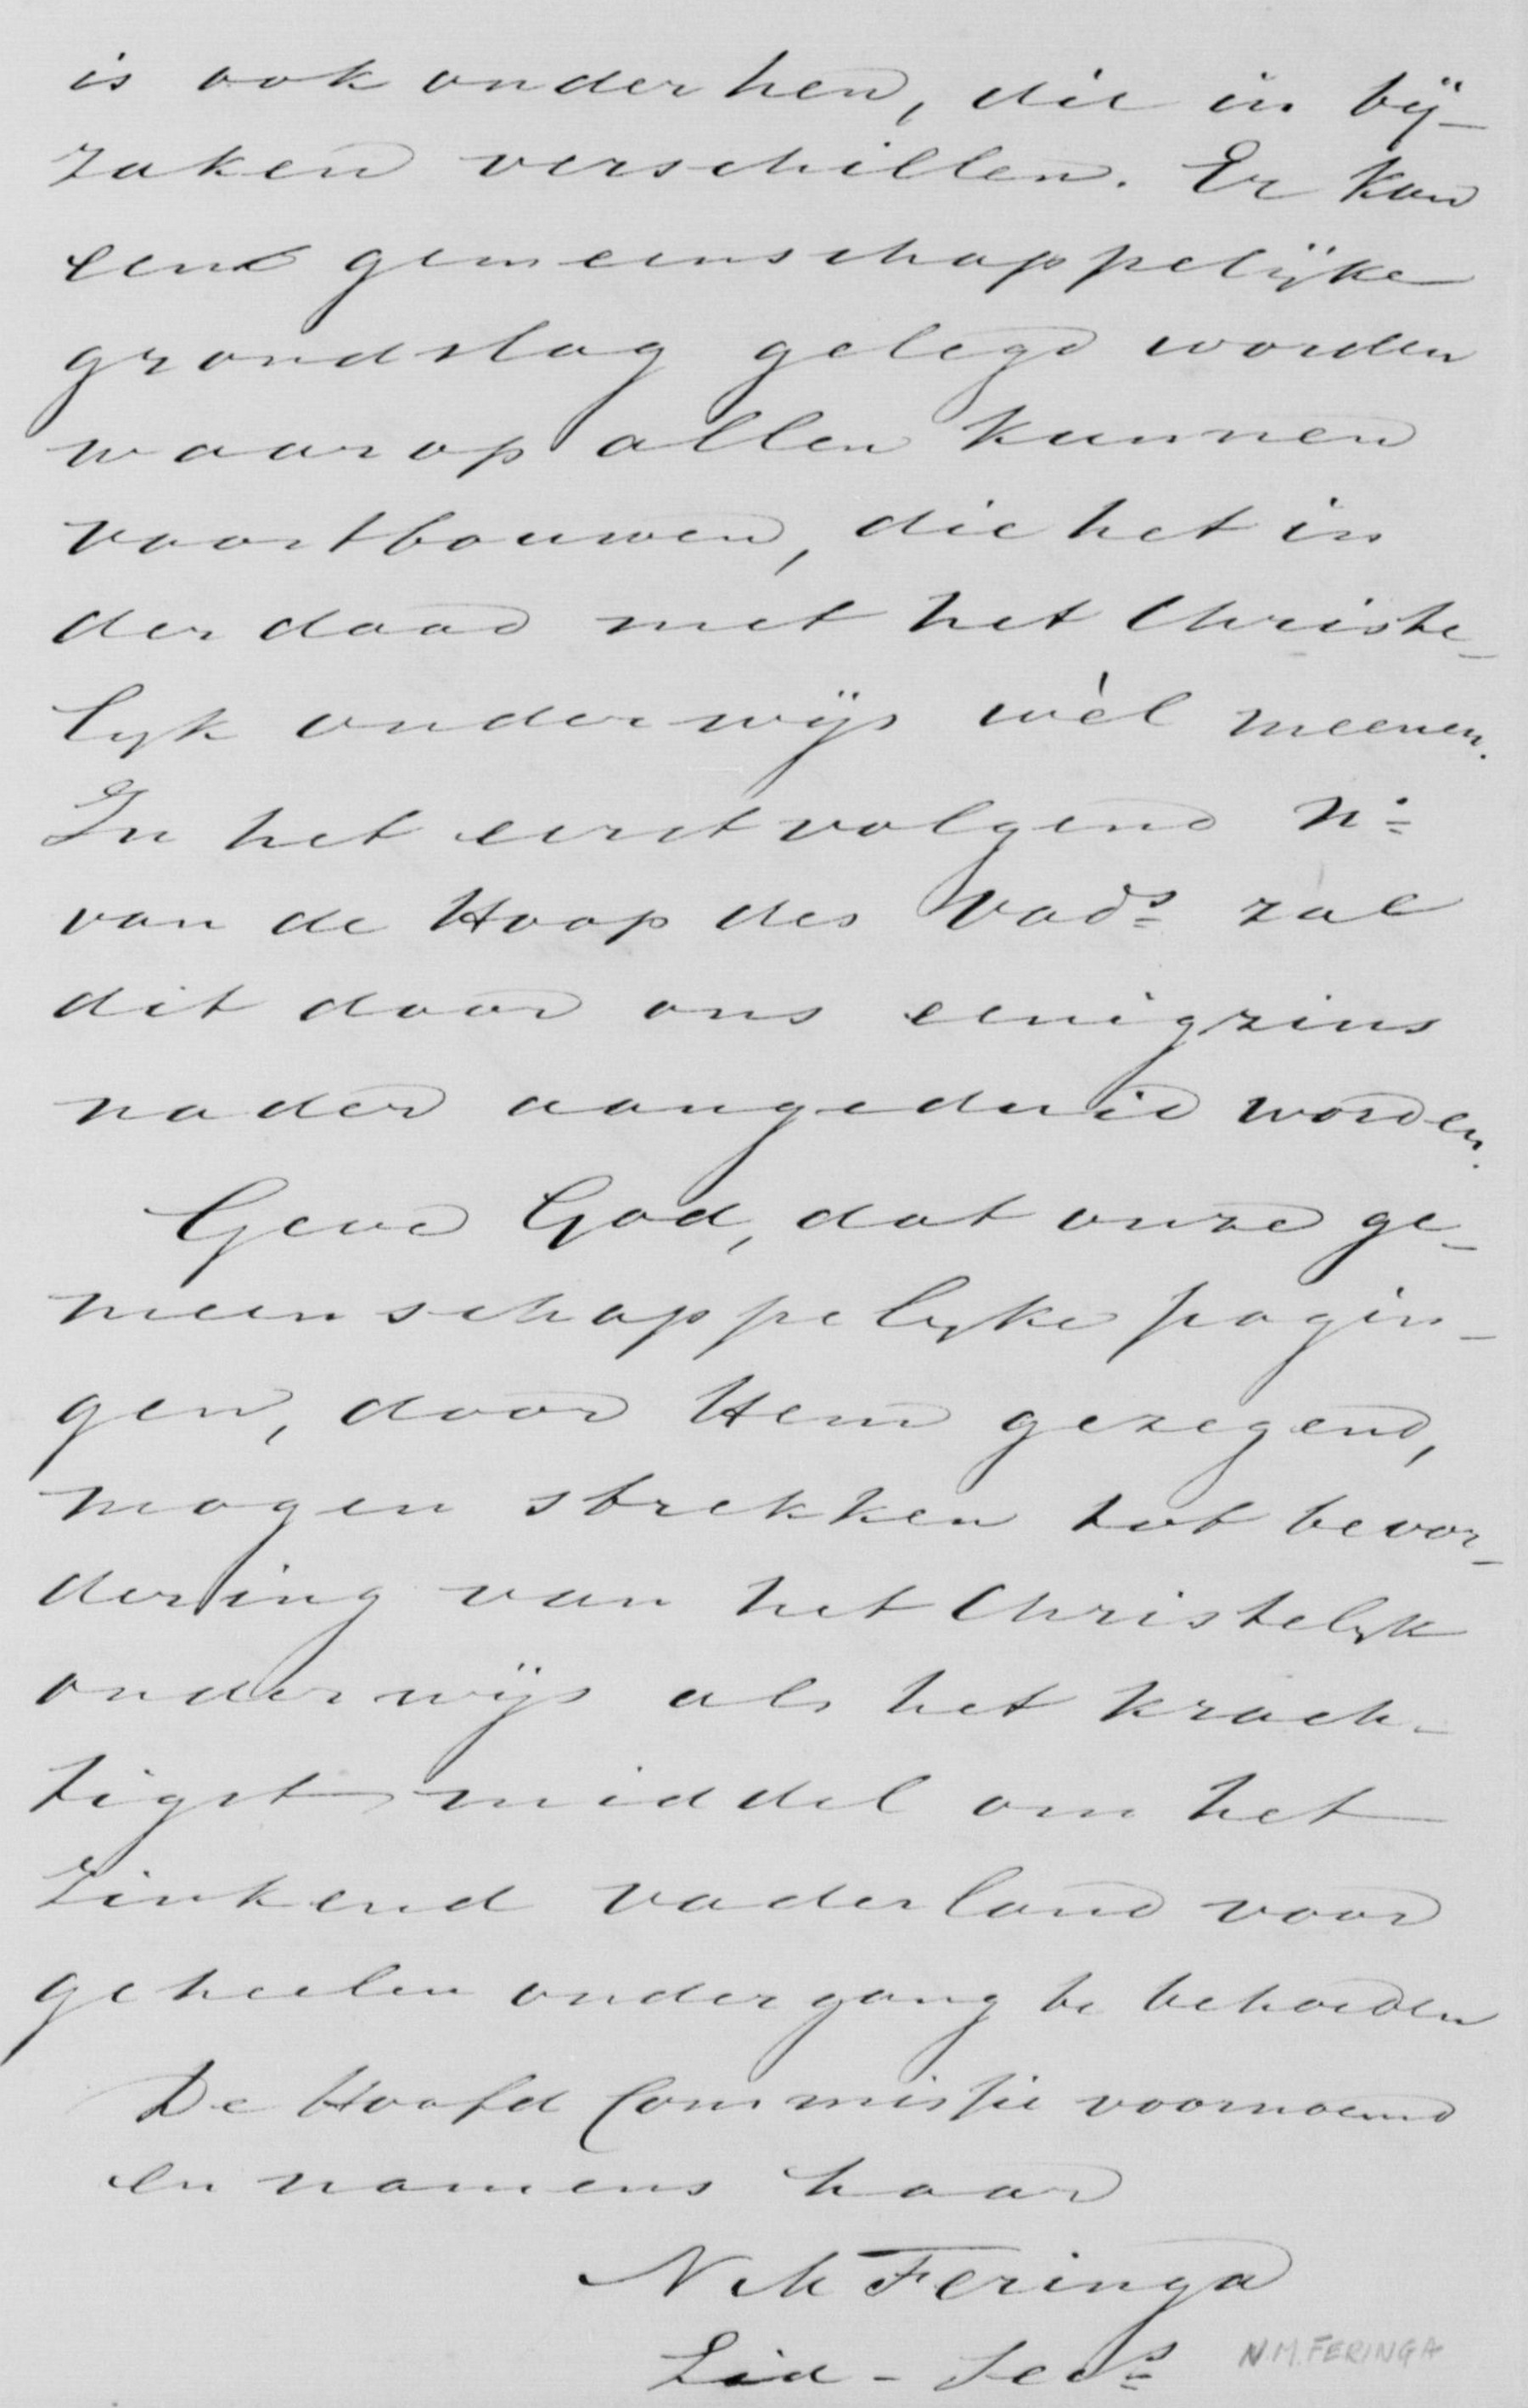 is ook onder hen, die in bij-
zaken verschillen. Er kan
eene gemeenschappelijke
grondslag gelegd worden
waarop allen kunnen
voortbouwen, die het in
der daad met het Christe-
lyk onderwijs wèl meenen.
In het eerstvolgend No
van de Hoop des Vads zal
dit door ons eenigzins
nader aangeduid worden.
Geve God, dat onze ge-
meenschappelyke pogin-
gen, door Hem gezegend,
mogen strekken tot bevor-
dering van het Christelyk
onderwijs als het krach-
tigst middel om het
zinkend vaderland voor
geheelen ondergang te behoeden
De Hoofd Commissie voornoemd
en namens haar
N M Feringa
Lid - Secs
N.M. FERINGA